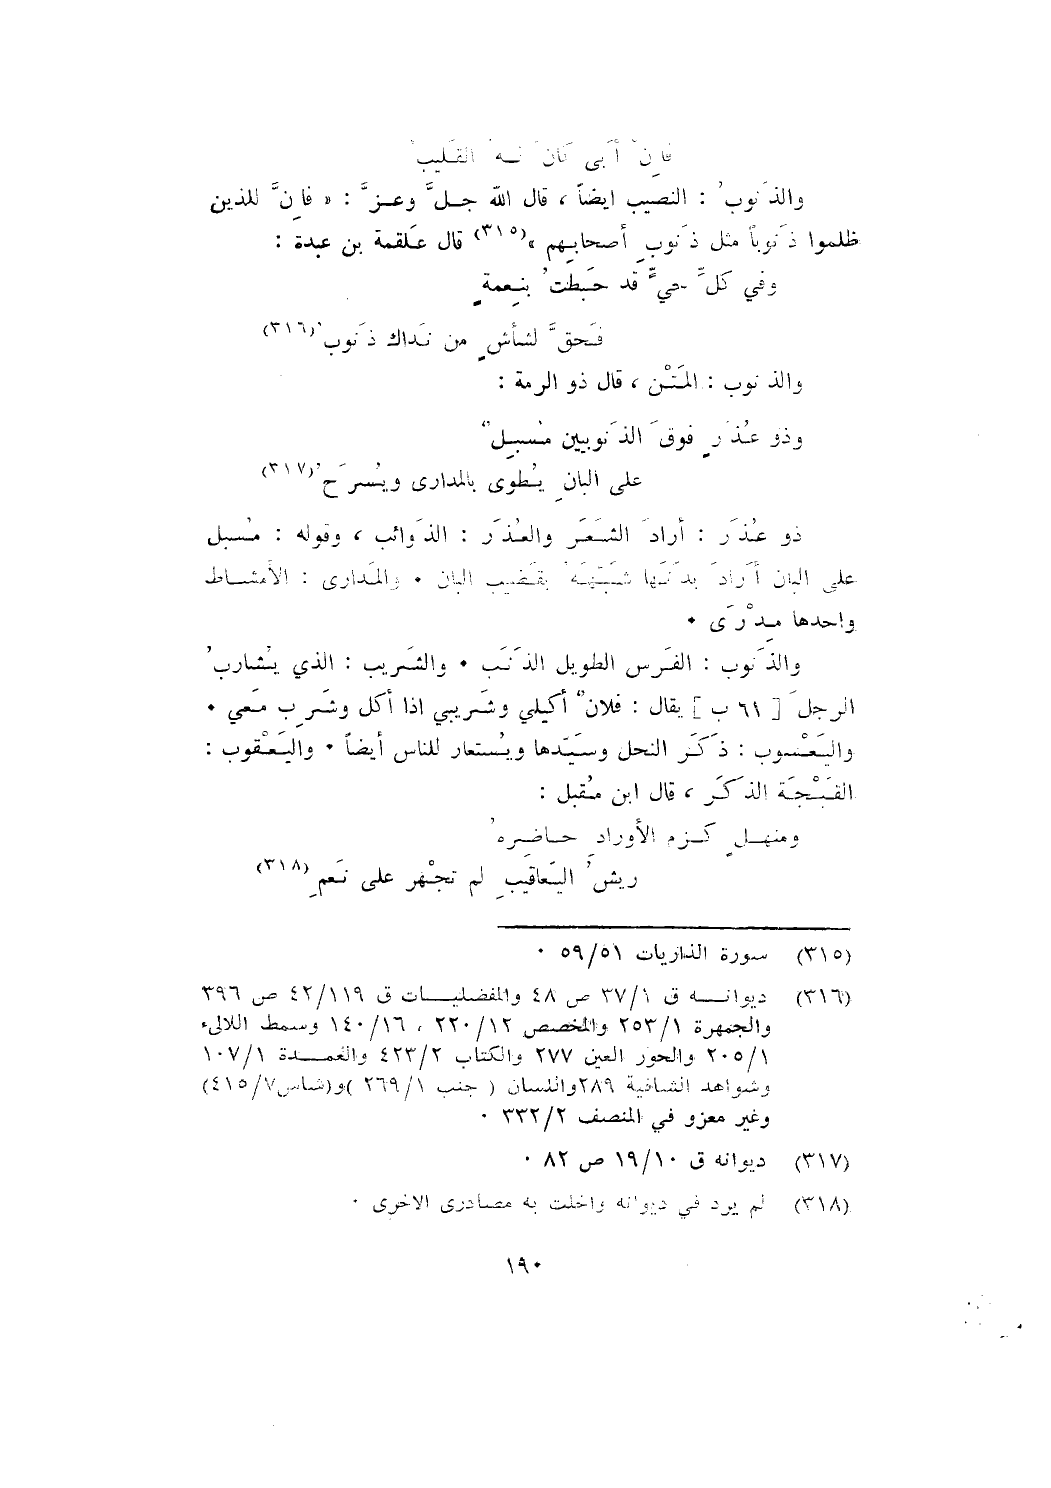 فإِنْ أَبى كانَ لـه القَليبُ
والذَنوبُ : النصيب ايضاً ، قال اللّه جـلَّ وعـزَّ : « فإِنَّ للذين
ظلموا ذَنوباً مثل ذَنوبِ أصحابِهم »(٣١٥) قال عَلقمة بن عبدة :
وفي كلِّ حيٍّ قد خَبَطتَ بنِعمةٍ
فَحقَّ لشأسٍ من نَداك ذَنوبُ(٣١٦)
والذنوب : المَتْن ، قال ذو الرمة :
وذو عُذَرٍ فوقَ الذَنوبين مُسبِلٌ
على البانِ يُطوى بالمدارى ويُسرَحُ(٣١٧)
ذو عُذَر : أرادَ الشَعَر والعُذَر : الذَوائب ، وقوله : مُسبل
على البان أَرادَ بدَنَها شَبَّهَهُ بقَضيب البان . والمَدارى : الأمشـاط
واحدها مِدْرَى .
والذَنوب : الفَرس الطويل الذَنَب . والشَريب : الذي يُشاربُ
الرجلَ [ ٦١ ب ] يقال : فلانٌ أكيلي وشَريبي اذا أكل وشَرِب مَعي .
واليَعْسوب : ذَكَر النحل وسَيّدها ويُستعار للناس أيضاً . واليَعْقوب :
القَبْجَة الذَكَر ، قال ابن مُقبل :
ومنهـلٍ كـزم الأورادِ حـاضِره
ريشُ اليَعاقيبِ لم تجْهر على نَعَمِ(٣١٨)
(٣١٥) سورة الذاريات ٥٩/٥١ .
(٣١٦) ديوانــه ق ٣٧/١ ص ٤٨ والمفضليــات ق ٤٢/١١٩ ص ٣٩٦
والجمهرة ٢٥٣/١ والمخصص ٢٢٠/١٢ ، ١٤٠/١٦ وسمط اللالىء
٢٠٥/١ والحور العين ٢٧٧ والكتاب ٤٢٣/٢ والعمــدة ١٠٧/١
وشواهد الشافية ٢٨٩ واللسان ( جنب ٢٦٩/١ ) و(شاس ٤١٥/٧)
وغير معزو في المنصف ٣٣٢/٢ .
(٣١٧) ديوانه ق ١٩/١٠ ص ٨٢ .
(٣١٨) لم يرد في ديوانه واخلت به مصادرى الاخرى .
١٩٠